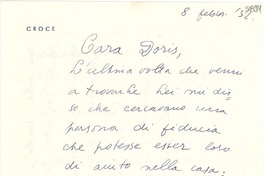 8 febbr. '32
CROCE
Cara Doris,
L'ultima volta che venni
a trovarla Lei mi dis=
se che cercavano una
persona di fiducia
che potesse esser loro
di aiuto nella casa.